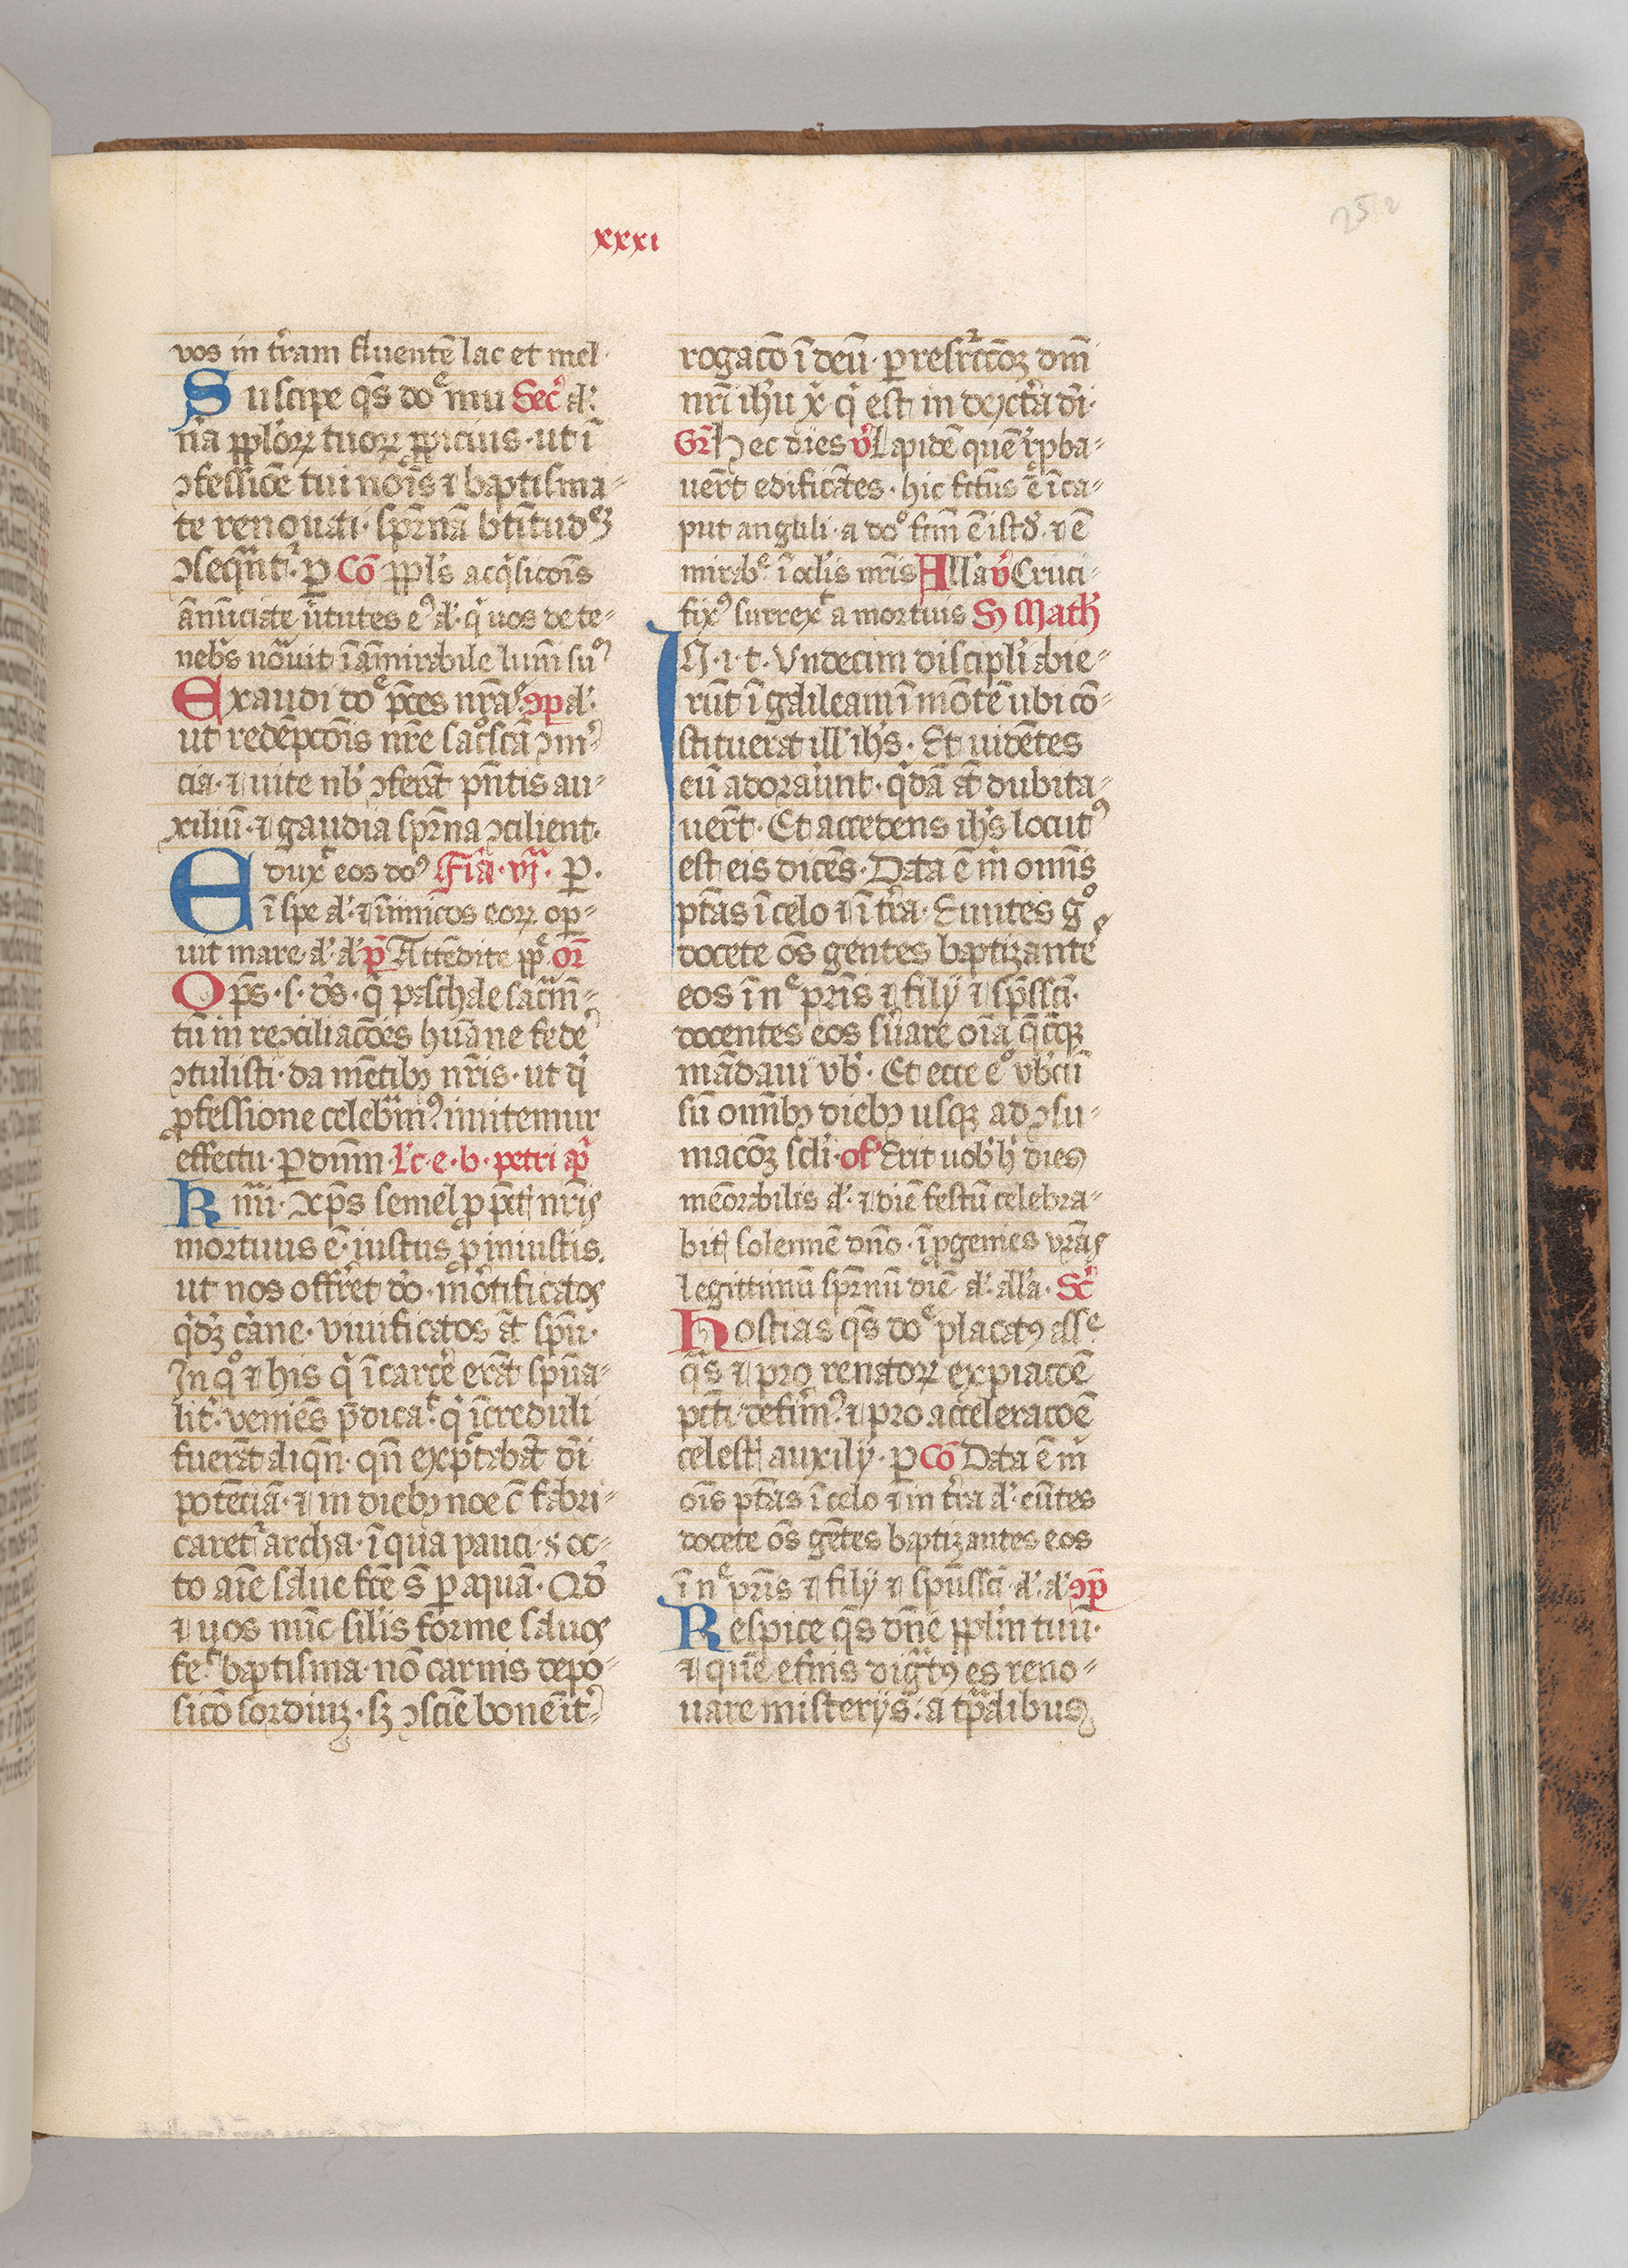 xxxi
252
vos in tr̄am fluentē lac et mel·
Suscipe q̄s do^e mu Sec̄ a͛·
n̄a pplo͛ꝝ tuoꝝ ꝓpicius· ut ī
ↄfessiōe tui noīs ⁊ baptisma-
te renouati· sp̄rnā btītudēꝫ
ↄseqnt͛· ꝑ Cō ppl͛s acq͛sicōis
ānūciate v͛tutes e᷒ a͛· q͛ uos de te-
neb͛s uōuit ī āmirabile lum̄ su᷒
Exaudi do^e p̄ces nr̄a^s ↄp a͛·
ut redēpcōis nr̄e sac͛oscā ↄm͛-
cia· ⁊ uite nb͛ ↄferāt pn̄tis au-
xiliū· ⁊ gaudia sp̄rna ↄcilient·
Edux^t eos do᷒ Fīa· vj· P·
ī spe a͛· ⁊ īimicos eoꝝ op͛-
uit mare· a͛· a͛ p̄ Attēdite pp^e or̄
Op̄s· s· d̄s· q͛ paschale sacm̄-
tū in reↄciliacōes hūane fede͛
ↄtulisti· da mētibꝫ nr̄is· ut q͛
ꝓfessione celebm᷒ imitemur
effectu· ꝑ dūm· l͛c· e· b· petri ap͛
Kmi· Xp̄s semel ꝓ pc̄t nr̄is
mortuus ē· iustus ꝓ iniustis·
ut nos offr͛et dō· mo͛tificatos
q͛dꝫ cāne· viuificatos āt spū·
In q° ⁊ his q͛ ī carc͛e erāt spūa-
lit͛· veniēs p̄dica^t· q͛ īcreduli
fuerāt aliqn̄· qn̄ exp̄ctabāt dī
potētiā· ⁊ in diebꝫ noe c̄ fabri-
caret͛ archa· ī qua pauci· s oc-
to aīe salue fc̄e s̄ ꝑ aquā· Qd͛
⁊ uos nūc silis forme saluos
fe^t baptisma· nō carnis depo-
sicō sordiuꝫ· sꝫ ↄsciē bone īt͛-
rogacō ī deū· ꝑ resr̄ccōeꝫ dn̄i
nr̄i ih͛u x͛· q͛ est in dexct͛a dī·
Gr̄ Hec dies v͛ Lapidē quē r̄pba-
uer̄t edificātes· hic fc̄tus ē ī ca-
put anguli· a do° fc̄m ē istd͛· ⁊ ē
mirab^e ī oclis nr̄is All͛a v͛ Cruci-
fix᷒ surrex^t a mortuis S͛ Math͛
IN· i· t· Vndecim discipl͛i abie-
rūt ī galileam ī mōtē ubi cō-
stituerat ill͛ ih͛s· Et uidētes
eū adora͛unt· q͛dā āt dubita-
uer̄t· Et accedens ih͛s locut᷒
est eis dicēs· Data ē m͛ omis
ptās ī celo ⁊ ī tr̄a· Euntes g°
docete os̄ gentes baptizante^s
eos ī n^e pr̄is ⁊ filij ⁊ sp̄ssc̄i·
docentes eos s͛uare oīa q̄cūqꝫ
mādaui vb͛· Et ecce e° vb͛cū
sū omībꝫ diebꝫ usqꝫ ad ↄsu-
macōeꝫ scl͛i· of͛ Erit uob͛ h͛ dies
meōrabilis a͛· ⁊ diē festū celebra-
bit͛ solennē dn̄o· ī ꝓgenies vrās
legittimū sp̄rnū diē a͛· all͛a· Sc͛
Hostias q̄s do^e placat᷒ ass^e
q̄s ⁊ pro renatoꝝ expiacōe
pc̄ti defim᷒ ⁊ pro acceleracōe
celest auxilij· ꝑ Cō Data ē m͛
oīs ptās ī celo ⁊ in tr̄a a͛· eūtes
docete os̄ gētes baptizantes eos
ī n^e pr̄is ⁊ filij ⁊ spūssc̄i· a͛· a͛ ↄp̄
Respice q̄s dn̄e ppl͛m tuū·
⁊ quē etnis dignat᷒ es reno-
uare misterijs· a tp̄alibus